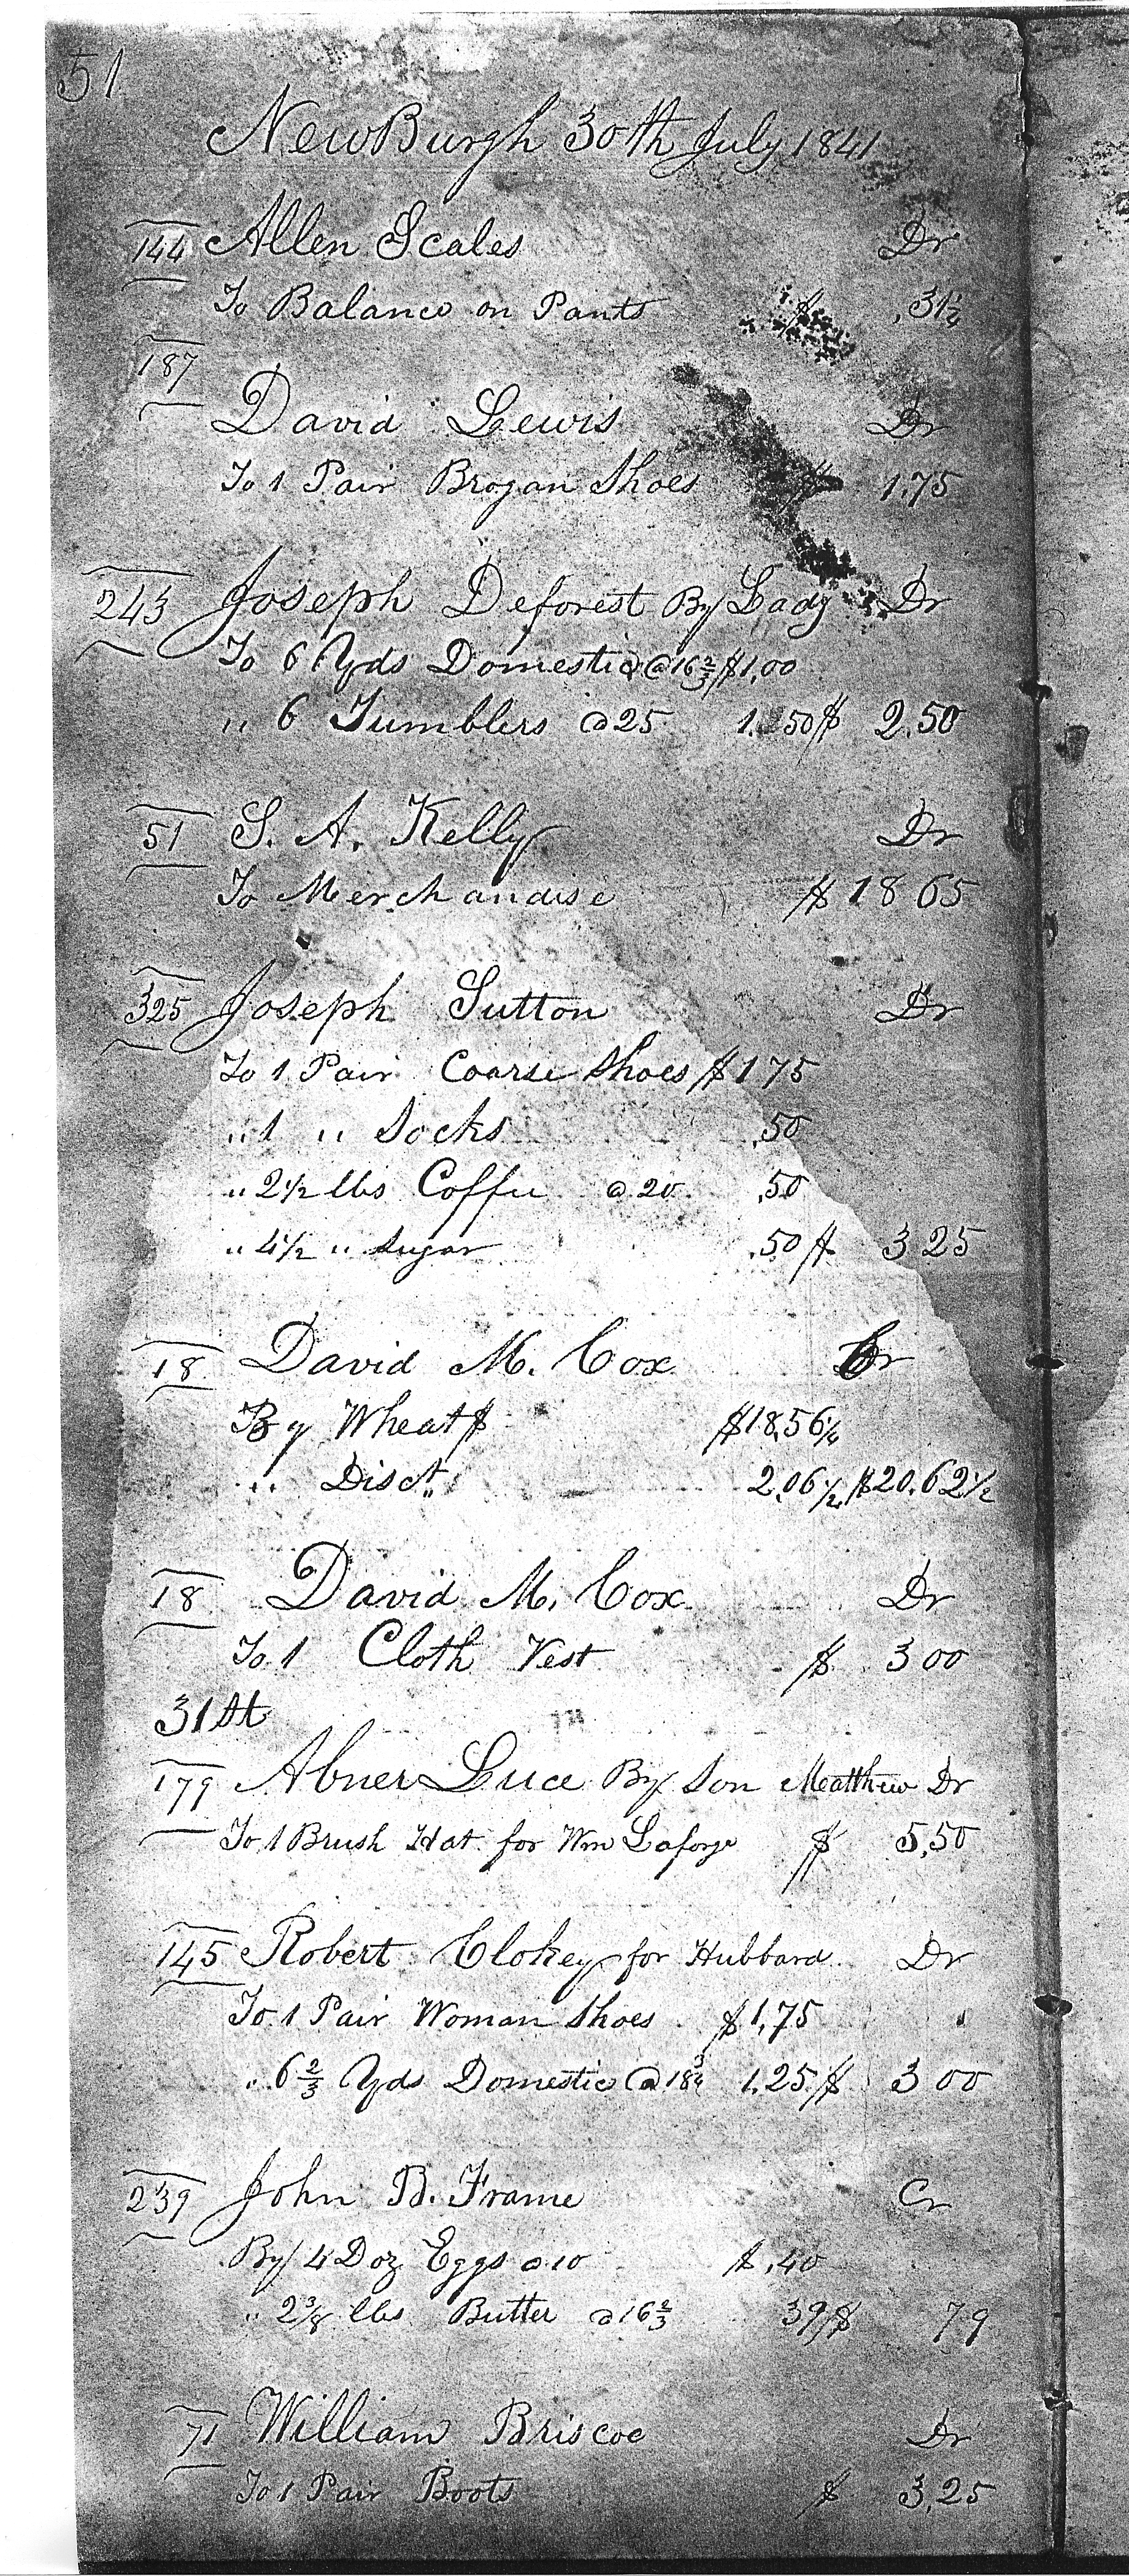 51
NewBurgh 30th July 1841
144 Allen Scales Dr
To Balance on Pants $ .31¼
187
David Lewis Dr
To 1 Pair Brogan Shoes $ 1.75
243 Joseph Deforest By Lady Dr
To 6 Yds Domestic @ 16⅔ $1,00
" 6 Tumblers @ 25 1.50 $ 2.50
51 S. A. Kelly Dr
To Merchandise $ 18 65
325 Joseph Sutton Dr
To 1 Pair Coarse Shoes $ 1 75
" 1 " Socks .50
" 2½ lbs Coffee @ 20 .50
" 4½ " Sugar .50 $ 3 25
18 David M. Cox Cr
By Wheat $ $18,56¼
" Disct " 2.06¼ $20.62½
18 David M. Cox Dr
To 1 Cloth Vest $ 3 00
31st
179 Abner Luce By Son Matthew Dr
To 1 Brush Hat for Wm Laforge $ 5,50
145 Robert Clokey for Hubbard Dr
To 1 Pair Woman Shoes $1,75
" 6⅔ Yds Domestic @ 18¾ 1.25 $ 3 00
239 John B. Frame Cr
By 4 Doz Eggs @ 10 $ .40
" 2⅜ lbs Butter @ 16⅔ 39 $ 79
71 William Briscoe Dr
To 1 Pair Boots $ 3,25